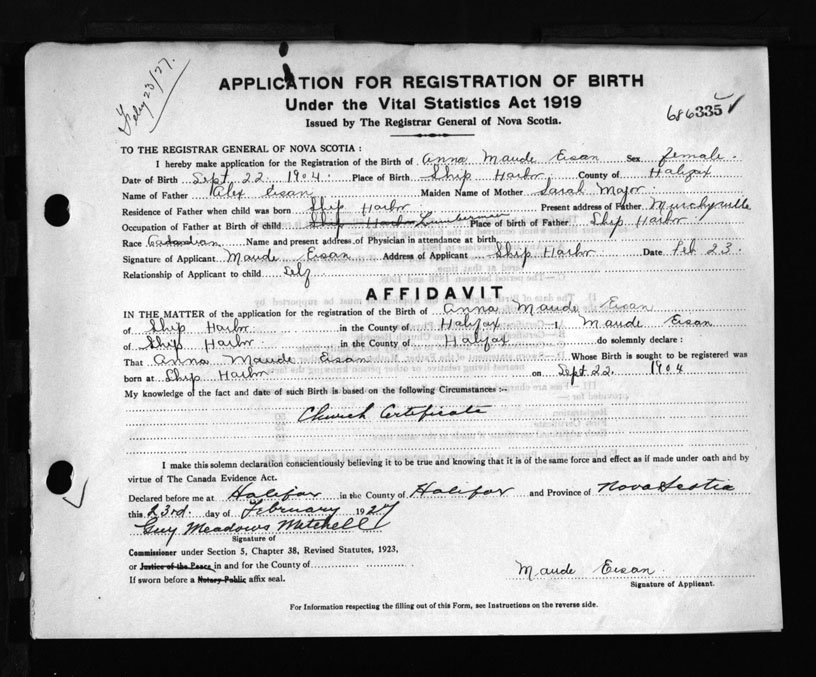 Feby 23/27.
APPLICATION FOR REGISTRATION OF BIRTH
Under the Vital Statistics Act 1919
Issued by The Registrar General of Nova Scotia.
686335
TO THE REGISTRAR GENERAL OF NOVA SCOTIA :
I hereby make application for the Registration of the Birth of Anna Maude Eisan Sex female.
Date of Birth Sept 22 1904. Place of Birth Ship Harbor, County of Halifax
Name of Father Alex Eisan Maiden Name of Mother Sarah Major.
Residence of Father when child was born Ship Harbor Present address of Father Murchyville
Occupation of Father at Birth of child Ship Harbor Lumberman Place of birth of Father Ship Harbor
Race Canadian Name and present address of Physician in attendance at birth
Signature of Applicant Maude Eisan Address of Applicant Ship Harbor Date Feb 23.
Relationship of Applicant to child Self
AFFIDAVIT
IN THE MATTER of the application for the registration of the Birth of Anna Maude Eisan
of Ship Harbor in the County of Halifax I, Maude Eisan
of Ship Harbor in the County of Halifax do solemnly declare :
That Anna Maude Eisan Whose Birth is sought to be registered was
born at Ship Harbor on Sept 22 1904
My knowledge of the fact and date of such Birth is based on the following Circumstances :–
Church Certificate
I make this solemn declaration conscientiously believing it to be true and knowing that it is of the same force and effect as if made under oath and by
virtue of The Canada Evidence Act.
Declared before me at Halifax in the County of Halifax and Province of Nova Scotia
this 23rd. day of February 1927
Guy Meadows Mitchell
Signature of
Commissioner under Section 5, Chapter 38, Revised Statutes, 1923,
or Justice of the Peace in and for the County of
If sworn before a Notary Public affix seal.
Maude Eisan.
Signature of Applicant.
For Information respecting the filling out of this Form, see Instructions on the reverse side.